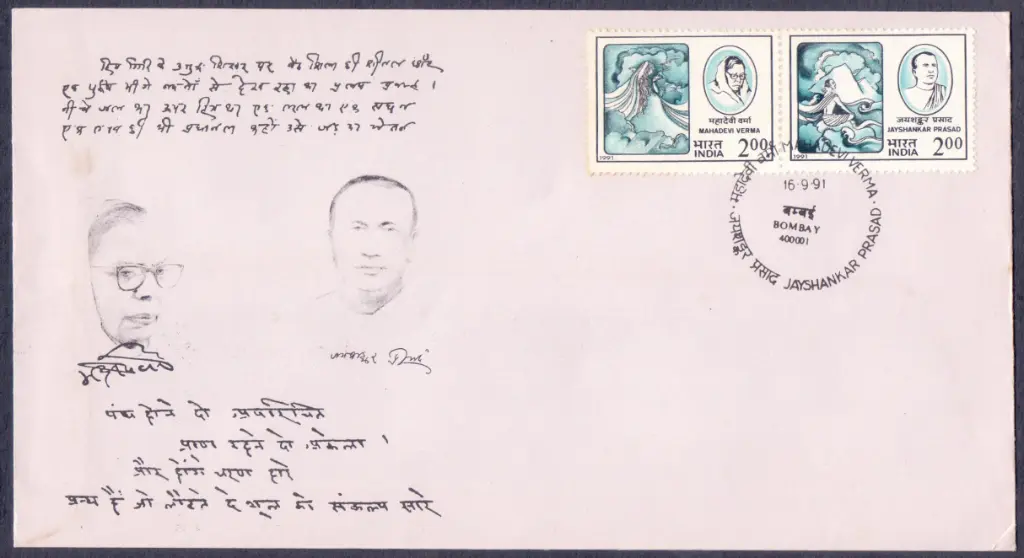 हिम गिरि के उत्तुङ्ग शिखर पर बैठ शिला की शीतल छाँह
एक पुरुष भीगे नयनों से देख रहा था प्रलय प्रवाह ।
नीचे जल था ऊपर हिम था एक तरल था एक सघन
एक तत्व ही की प्रधानता कहो उसे जड़ या चेतन
महादेवी वर्मा
MAHADEVI VERMA
भारत
INDIA
2 00
1991
जयशङ्कर प्रसाद
JAYSHANKAR PRASAD
भारत
INDIA
2 00
1991
महादेवी वर्मा MAHADEVI VERMA
16-9-91
बम्बई
BOMBAY
400001
जयशङ्कर प्रसाद JAYSHANKAR PRASAD
जयशङ्कर प्रसाद
पंथ होने दो अपरिचित
प्राण रहने दो अकेला ।
और होंगे चरण हारे
अन्य हैं जो लौटते दे शूल को संकल्प सारे